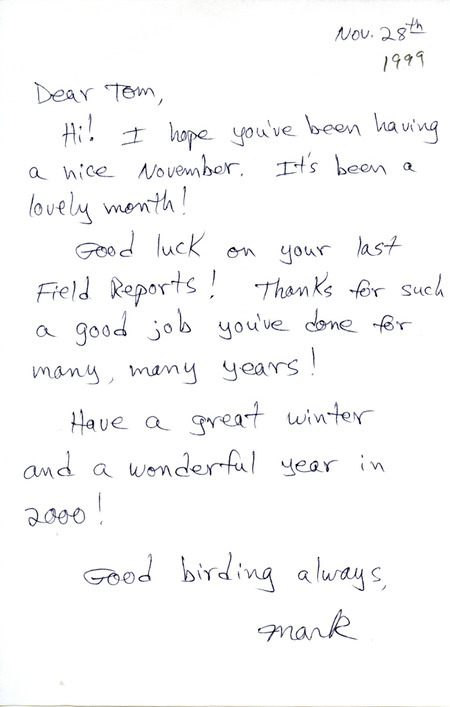 Nov. 28th
1999
Dear Tom,
Hi! I hope you've been having
a nice November. It's been a
lovely month!
Good luck on your last
Field Reports! Thanks for such
a good job you've done for
many, many years!
Have a great winter
and a wonderful year in
2000!
Good birding always,
Mark